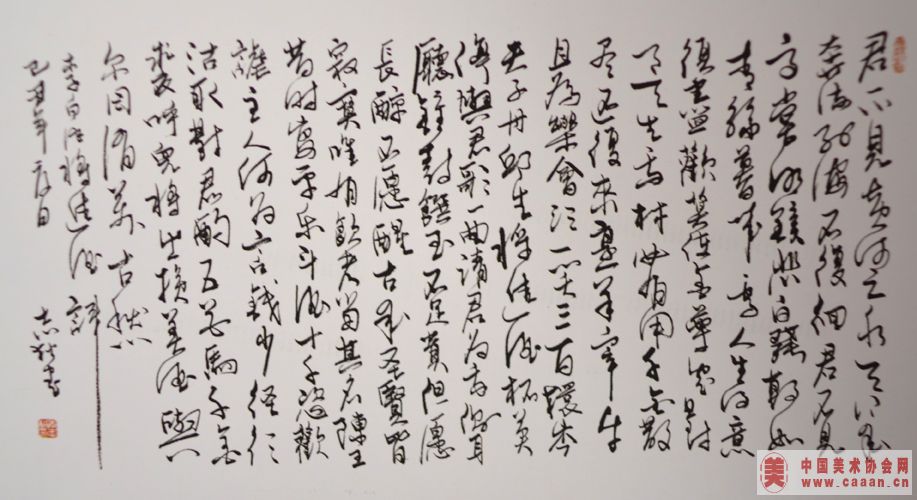 君不見黃河之水天上來
奔流到海不復回君不見
高堂明鏡悲白髮朝如
青絲暮成雪人生得意
須盡歡莫使金尊空對
月天生吾材必有用千金散
盡還復來烹羊宰牛
且為樂會須一飲三百杯岑
夫子丹邱生將進酒杯莫
停與君歌一曲請君為我側耳
聽鐘鼓饌玉不足貴但願
長醉不願醒古來聖賢皆
寂寞唯有飲者留其名陳王
昔時宴平樂斗酒十千恣歡
謔主人何為言錢少徑須
沽取對君酌五花馬千金
裘呼兒將出換美酒與
尔同消萬古愁
李白詩將進酒 詩
己丑年夏日
書
美 中国美术协会网
www.caaan.cn